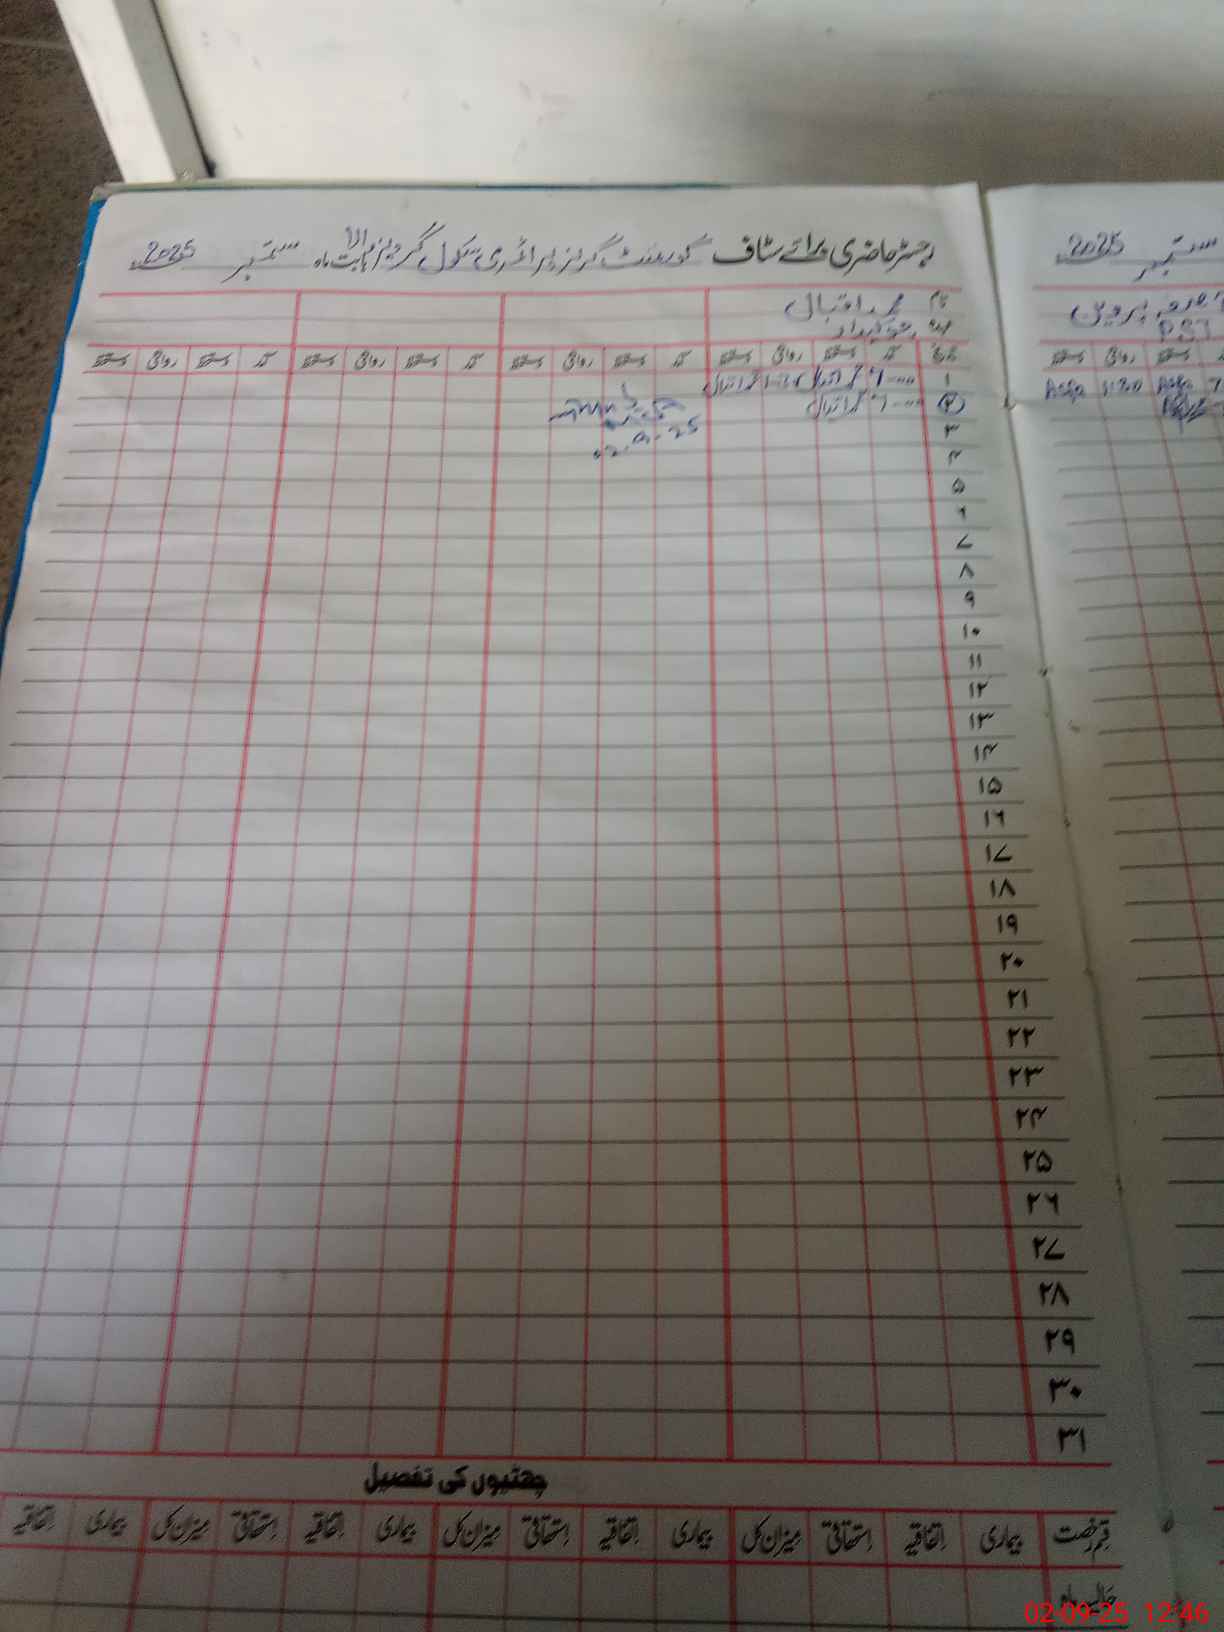 رجسٹر حاضری برائے سٹاف گورنمنٹ گرلز پرائمری سکول بابت ماہ ستمبر 2025
نام محمد اقبال
عہدہ چوکیدار
تاریخ آمد دستخط روانگی دستخط آمد دستخط روانگی دستخط آمد دستخط روانگی دستخط آمد دستخط روانگی دستخط
۱ محمد اقبال محمد اقبال
۲ محمد اقبال
02-9-25
۳
۴
۵
۶
۷
۸
۹
۱۰
۱۱
۱۲
۱۳
۱۴
۱۵
۱۶
۱۷
۱۸
۱۹
۲۰
۲۱
۲۲
۲۳
۲۴
۲۵
۲۶
۲۷
۲۸
۲۹
۳۰
۳۱
چھٹیوں کی تفصیل
قسم رخصت بیماری اتفاقیہ استحقاقی میزان کل بیماری اتفاقیہ استحقاقی میزان کل بیماری اتفاقیہ استحقاقی میزان کل بیماری اتفاقیہ
حالیہ ماہ
ستمبر 2025
پروین
PST
دستخط روانگی دستخط
1130
02-09-25 12:46